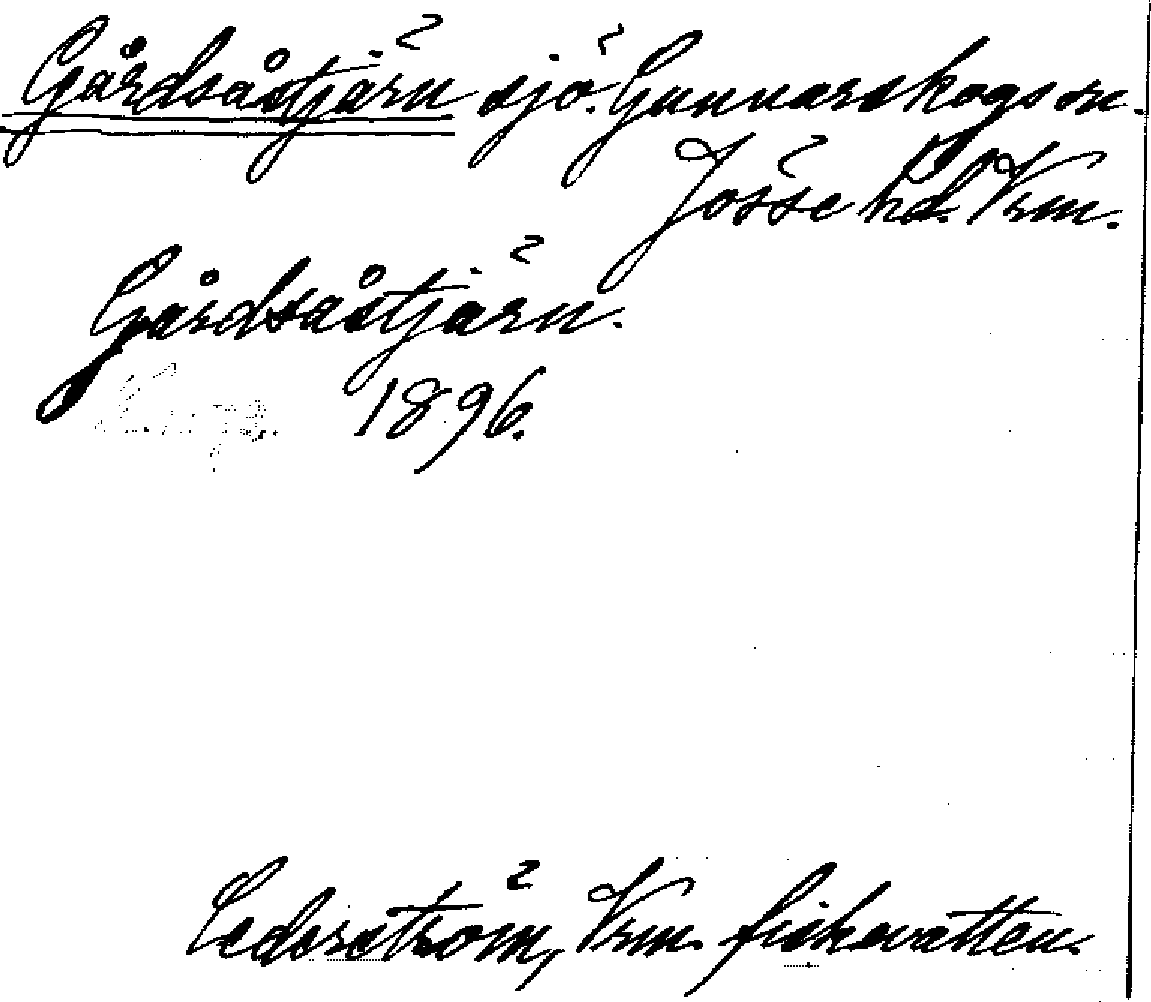 Gårdsåstjärn sjö. Gunnarskogs sn.
Jösse hd. Vrm.
Gårdsåstjärn.
1896.
Cederström, Vrm. fiskevatten.